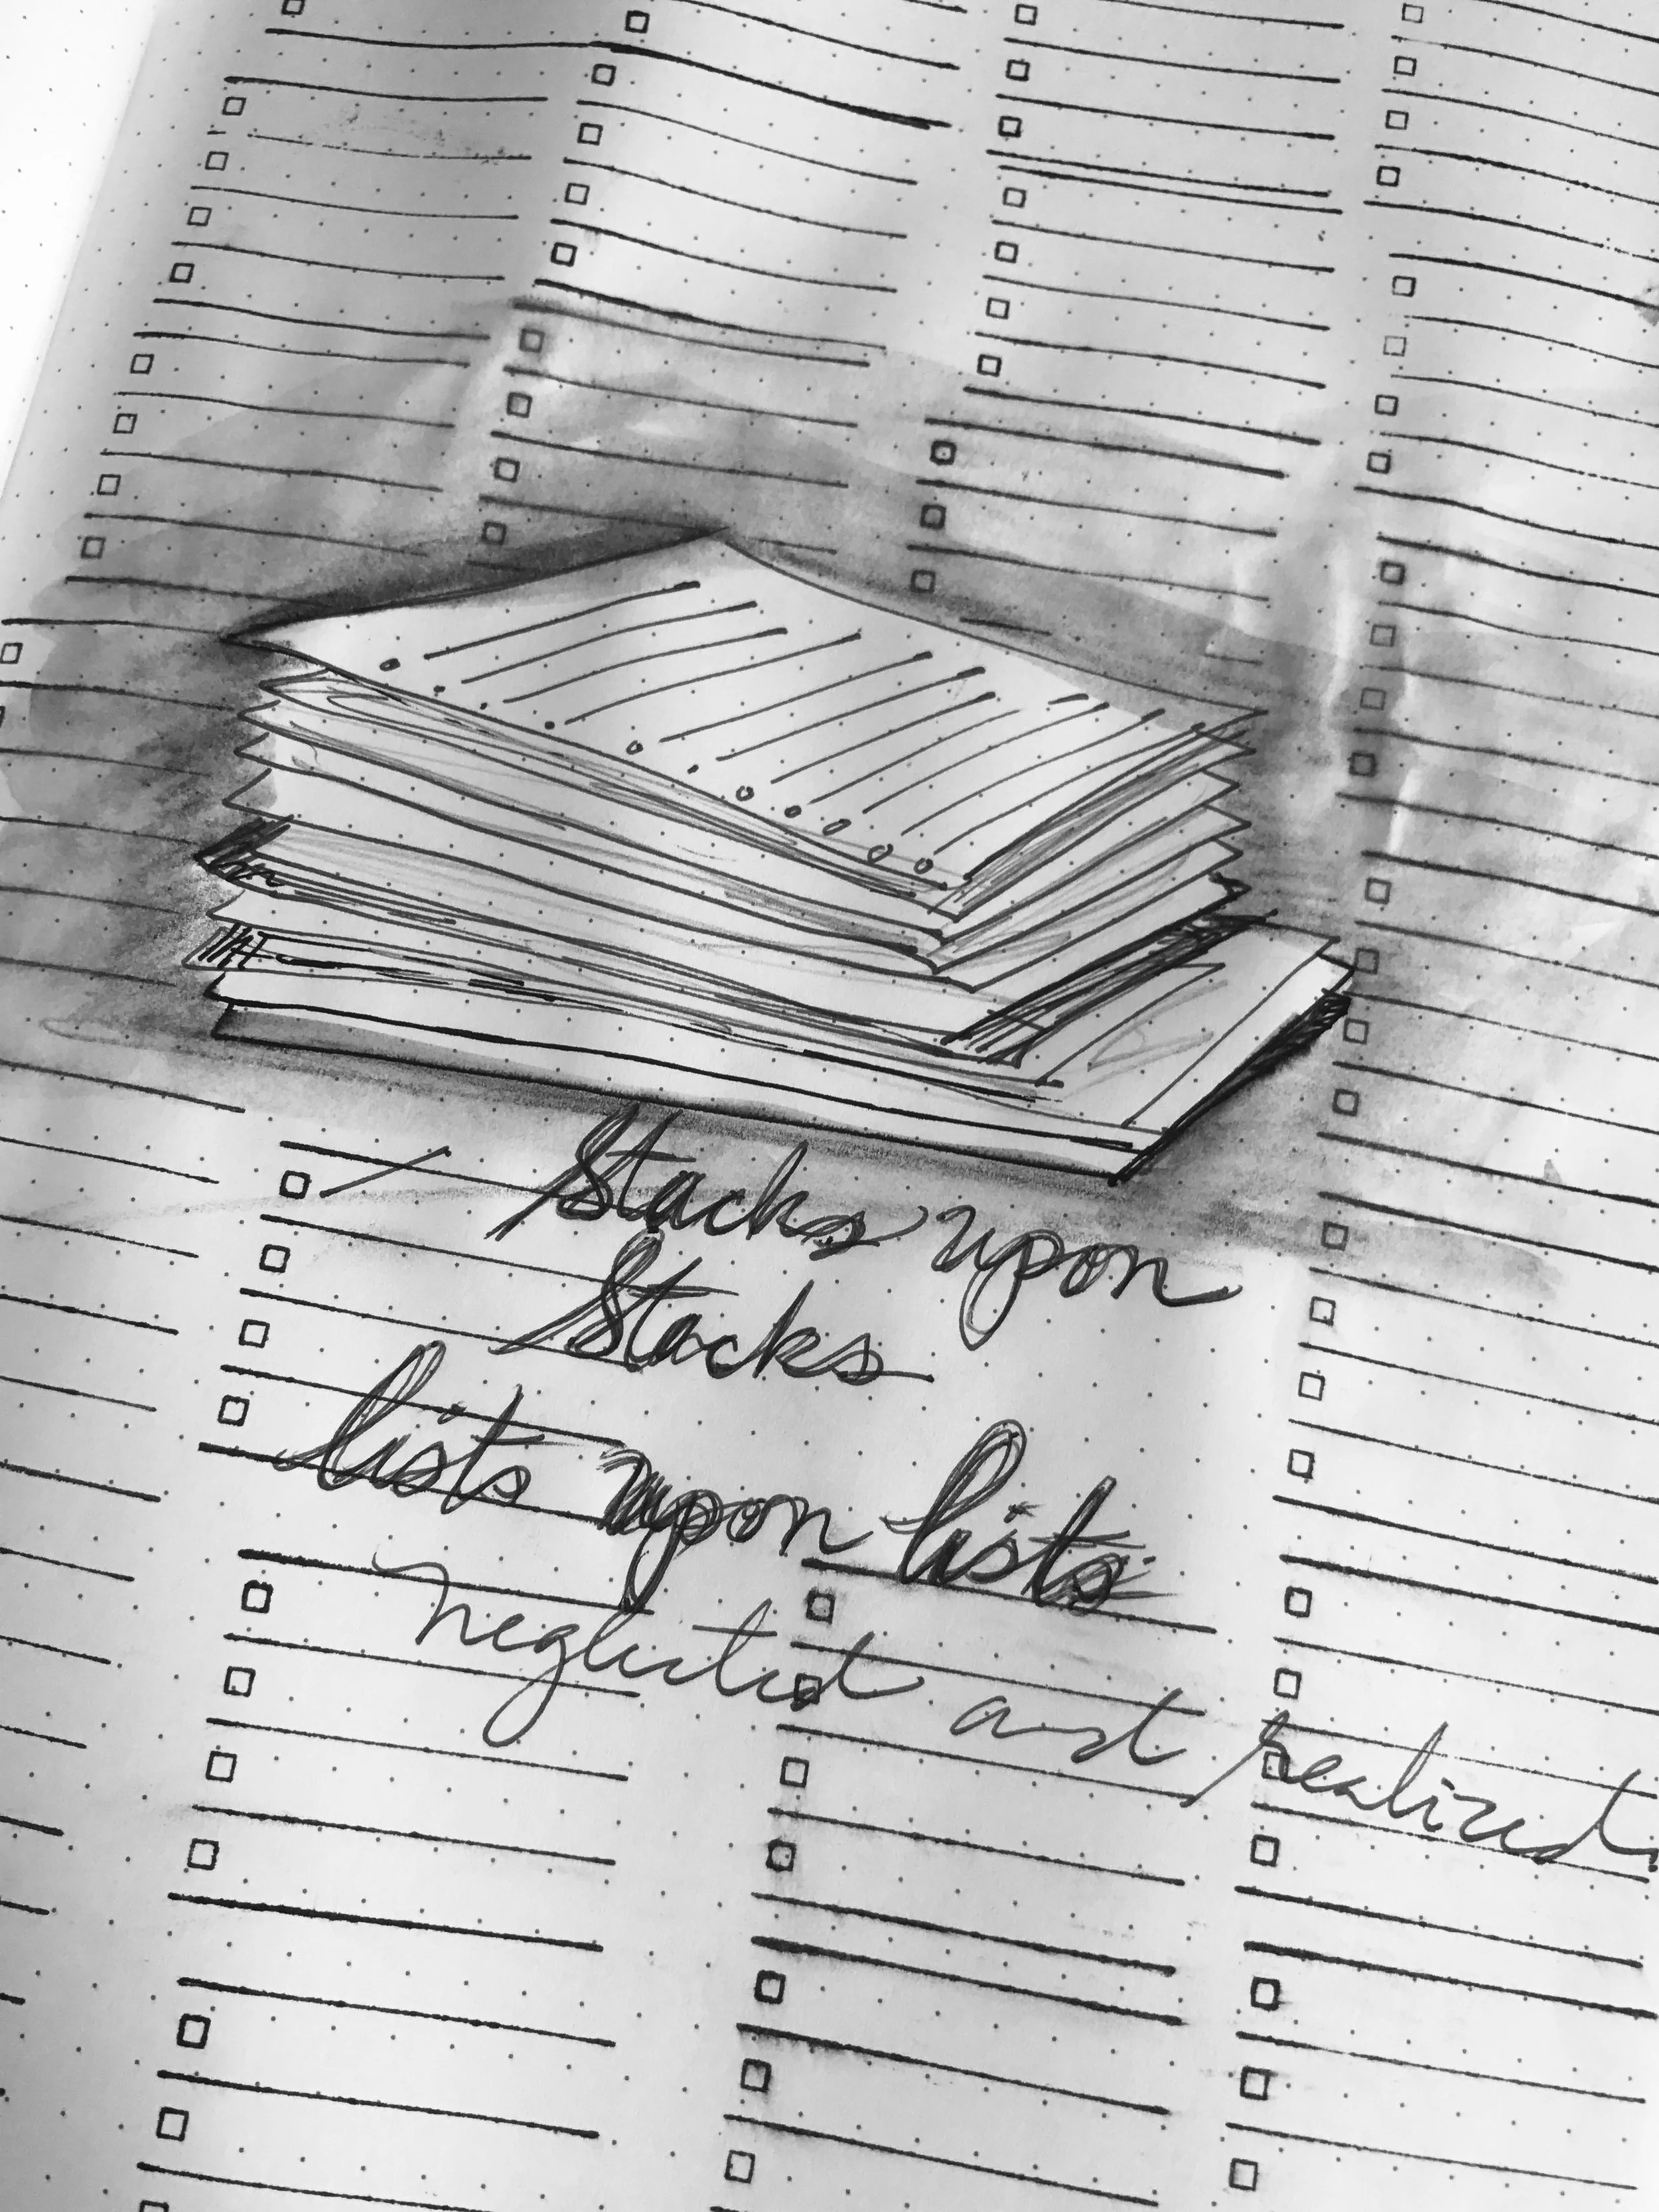 Stacks upon
Stacks
lists upon lists
neglected and realized.